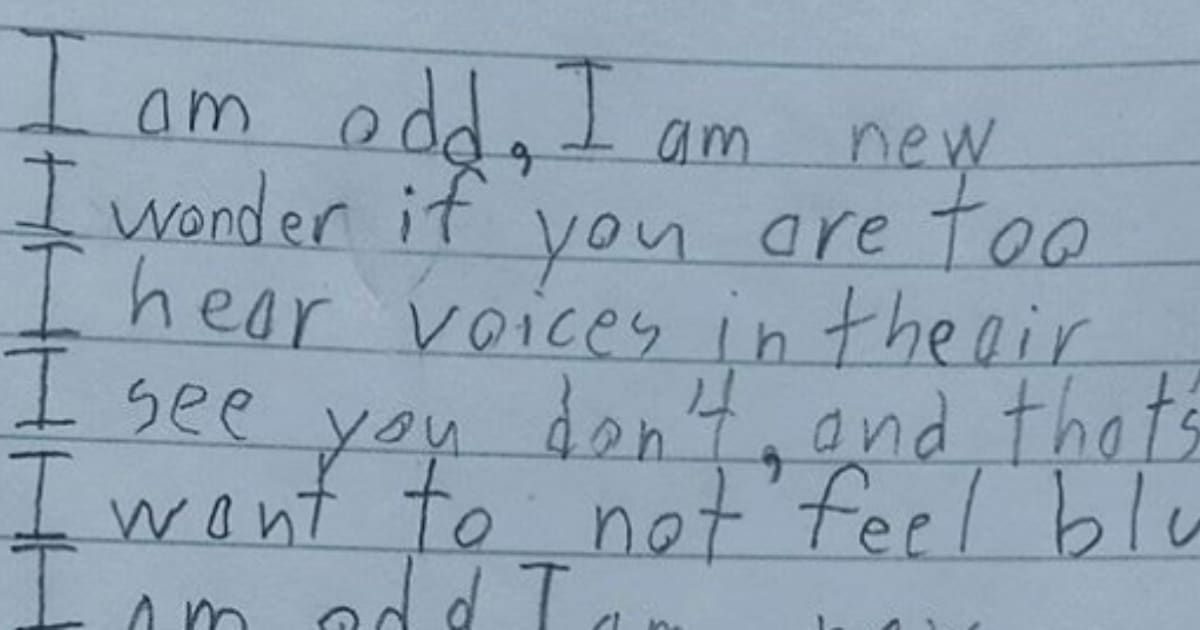 I am odd, I am new
I wonder if you are too
I hear voices in the air
I see you don't, and that's
I want to not feel blu
I am odd I am